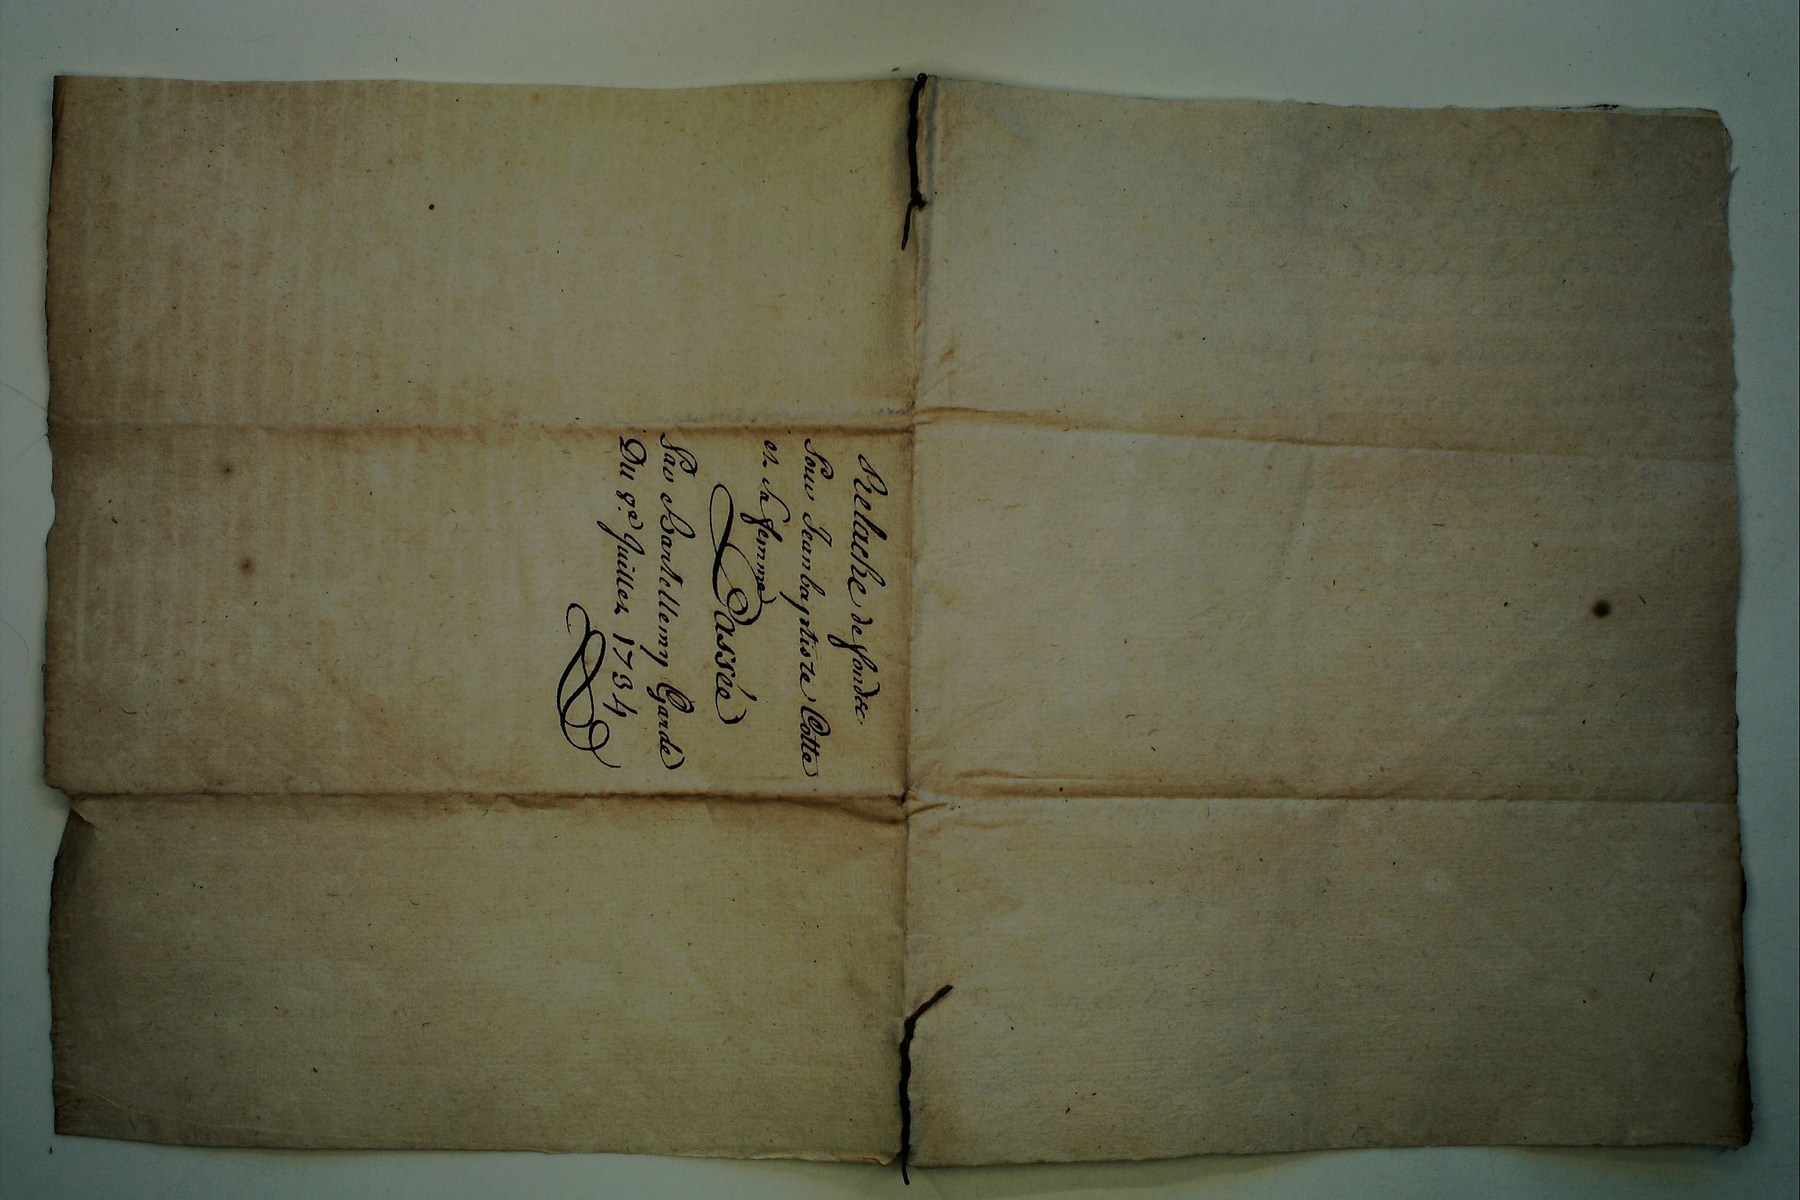 Relache de fonds
Pour Jeanbaptiste Cotte
et sa femme
Passée
Par Bartellemy Garde
Du 9e. Juillet 1734